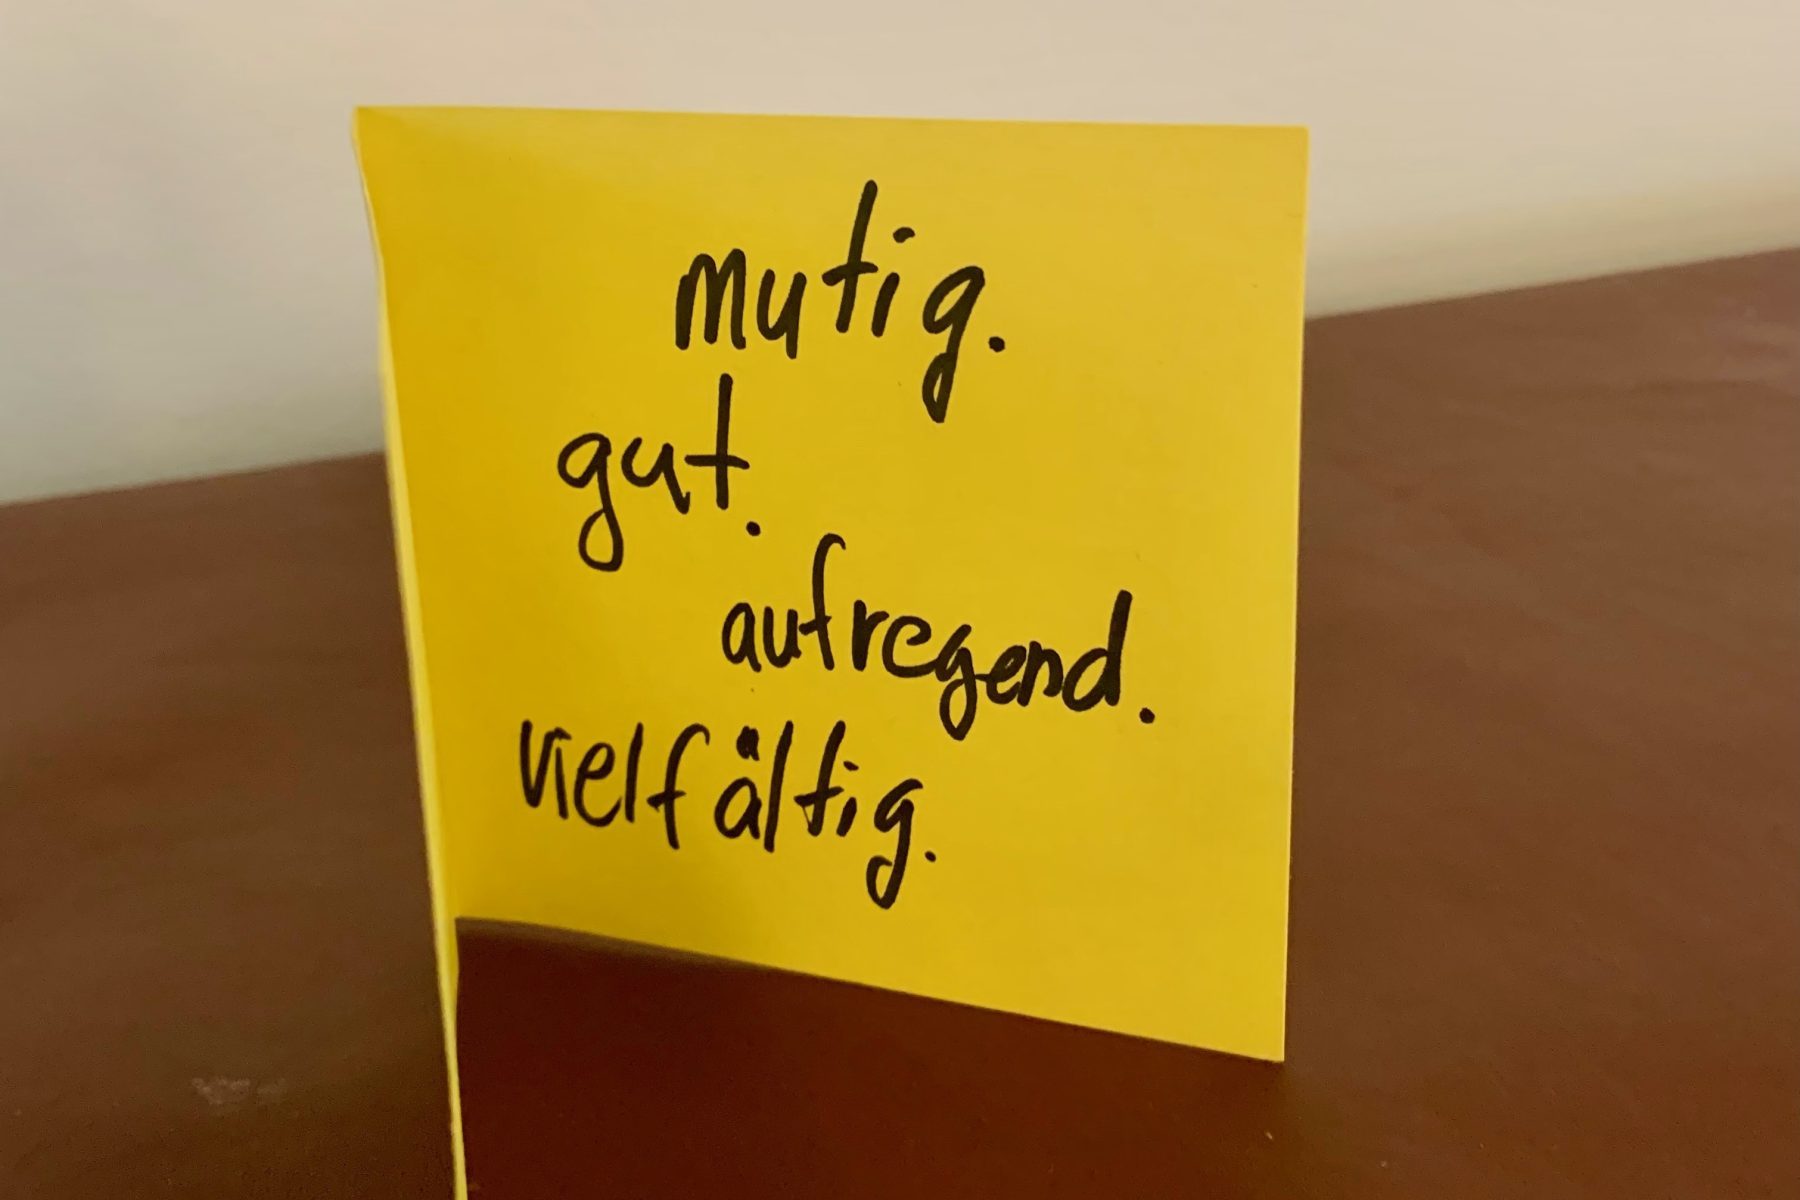 mutig.
gut.
aufregend.
vielfältig.